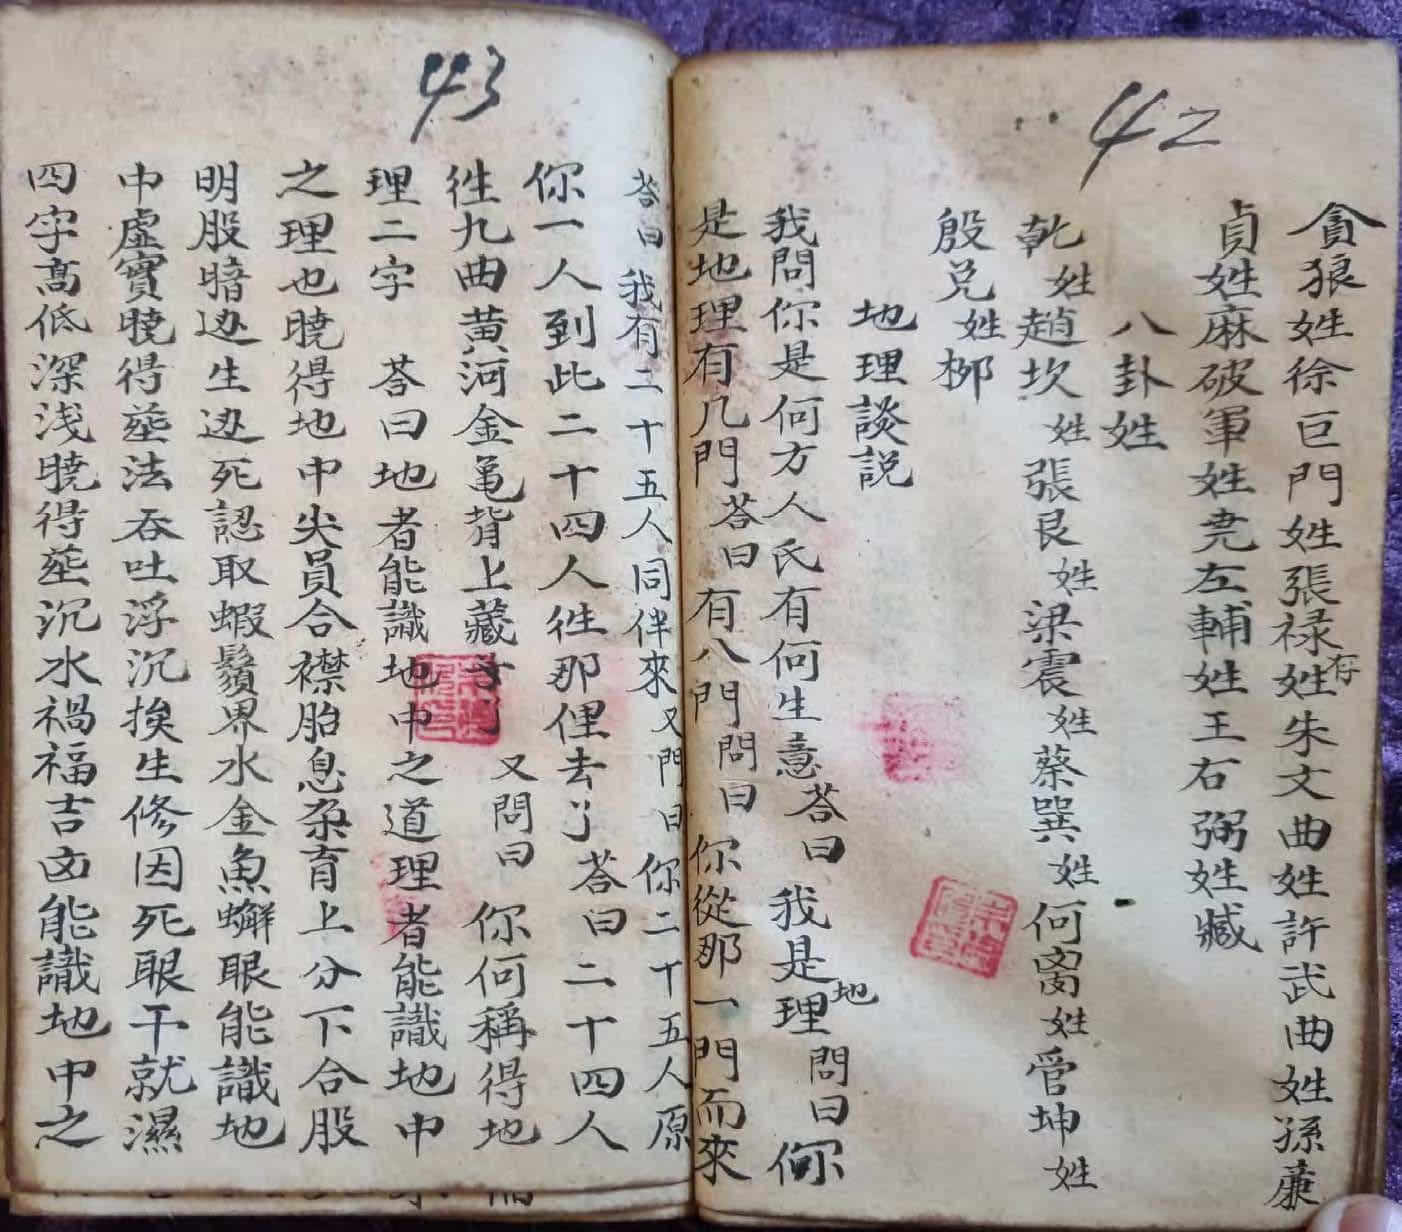 42
貪狼姓徐巨門姓張禄存姓朱文曲姓許武曲姓孫廉
貞姓麻破軍姓尭左輔姓王右弼姓臧
八卦姓
乾姓趙坎姓張艮姓梁震姓蔡巽姓何离姓管坤姓
殷兑姓柳
地理談説
我問你是何方人氏有何生意答曰我是地理問曰你
是地理有几門答曰有八門問曰你從那一門而來
43
答曰我有二十五人同伴來又門曰你二丅五人原
你一人到此二十四人徃那俚去了答曰二十四人
徃九曲黄河金亀背上藏 又問曰你何稱得地
理二字 答曰地者能識地中之道理者能識地中
之理也曉得地中尖員合襟胎息孕育上分下合股
明股暗边生边死認取蝦鬚界水金魚蠏眼能識地
中虚實曉得塟法吞吐浮沉挨生修因死眼干就濕
四字高低深浅曉得塟沉水禍福吉凶能識地中之